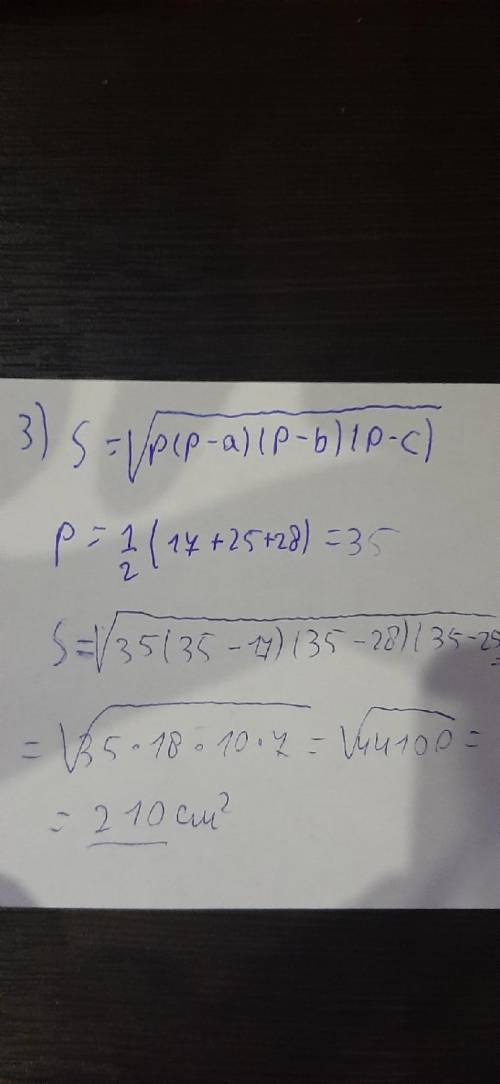 3) S = √p(p-a)(p-b)(p-c)
p = 1/2 (17+25+28) = 35
S = √35(35-17)(35-28)(35-25
= √35·18·10·7 = √44100 =
= 210 см²